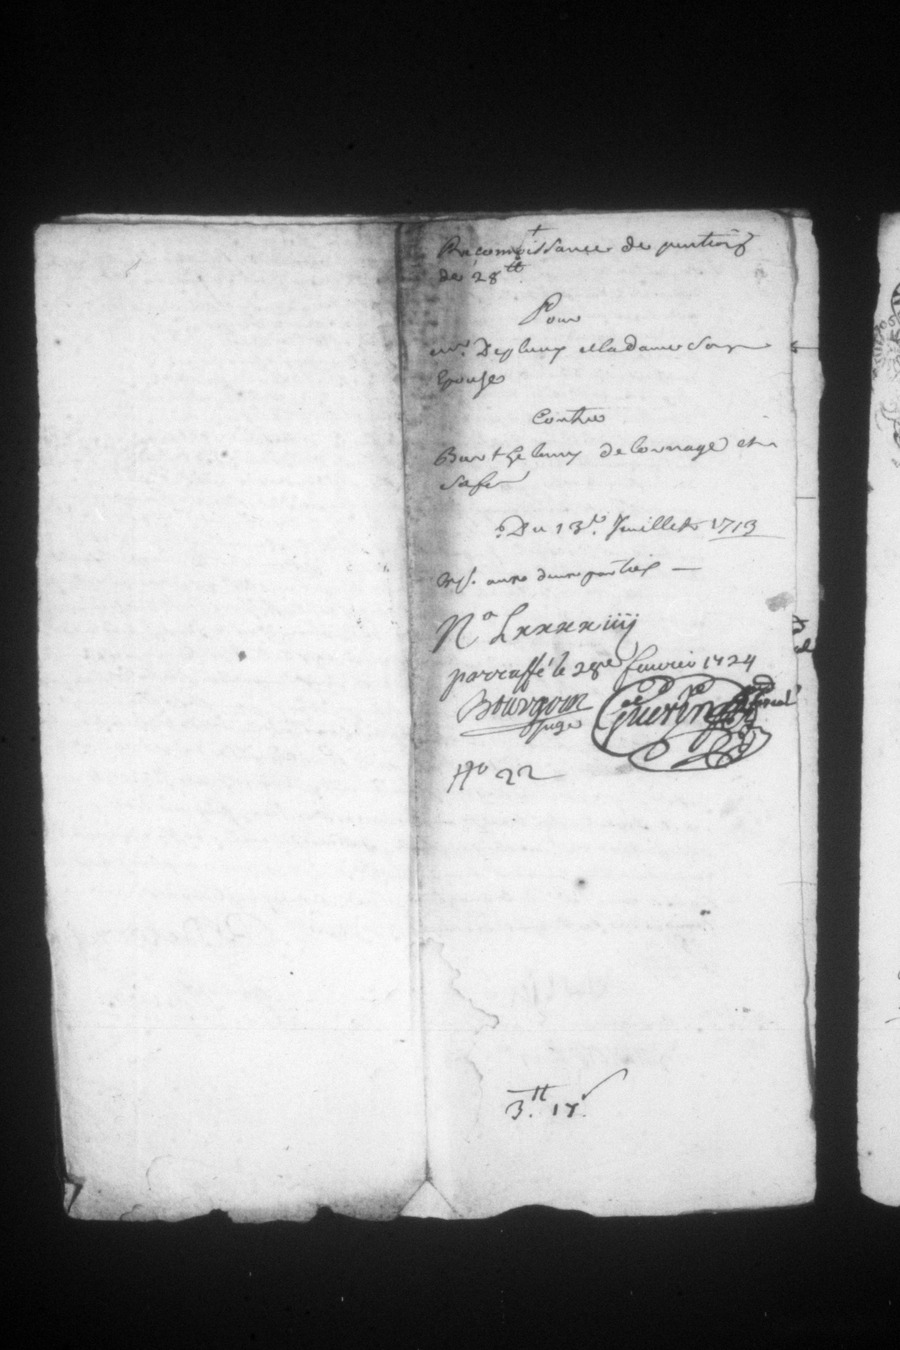 Reconnoissance de
de 28 tt
Pour
mr. Depluny et la dame Son
Epouse
Contre
Barthelemy delornage et
Safe
Du 13e. Juillet 1713
aux deux parties —
No Lxxxxiiij
parraffé le 28e feuvrier 1724
Bourgoin Guerin
Juge
No 22
3.tt 17.s